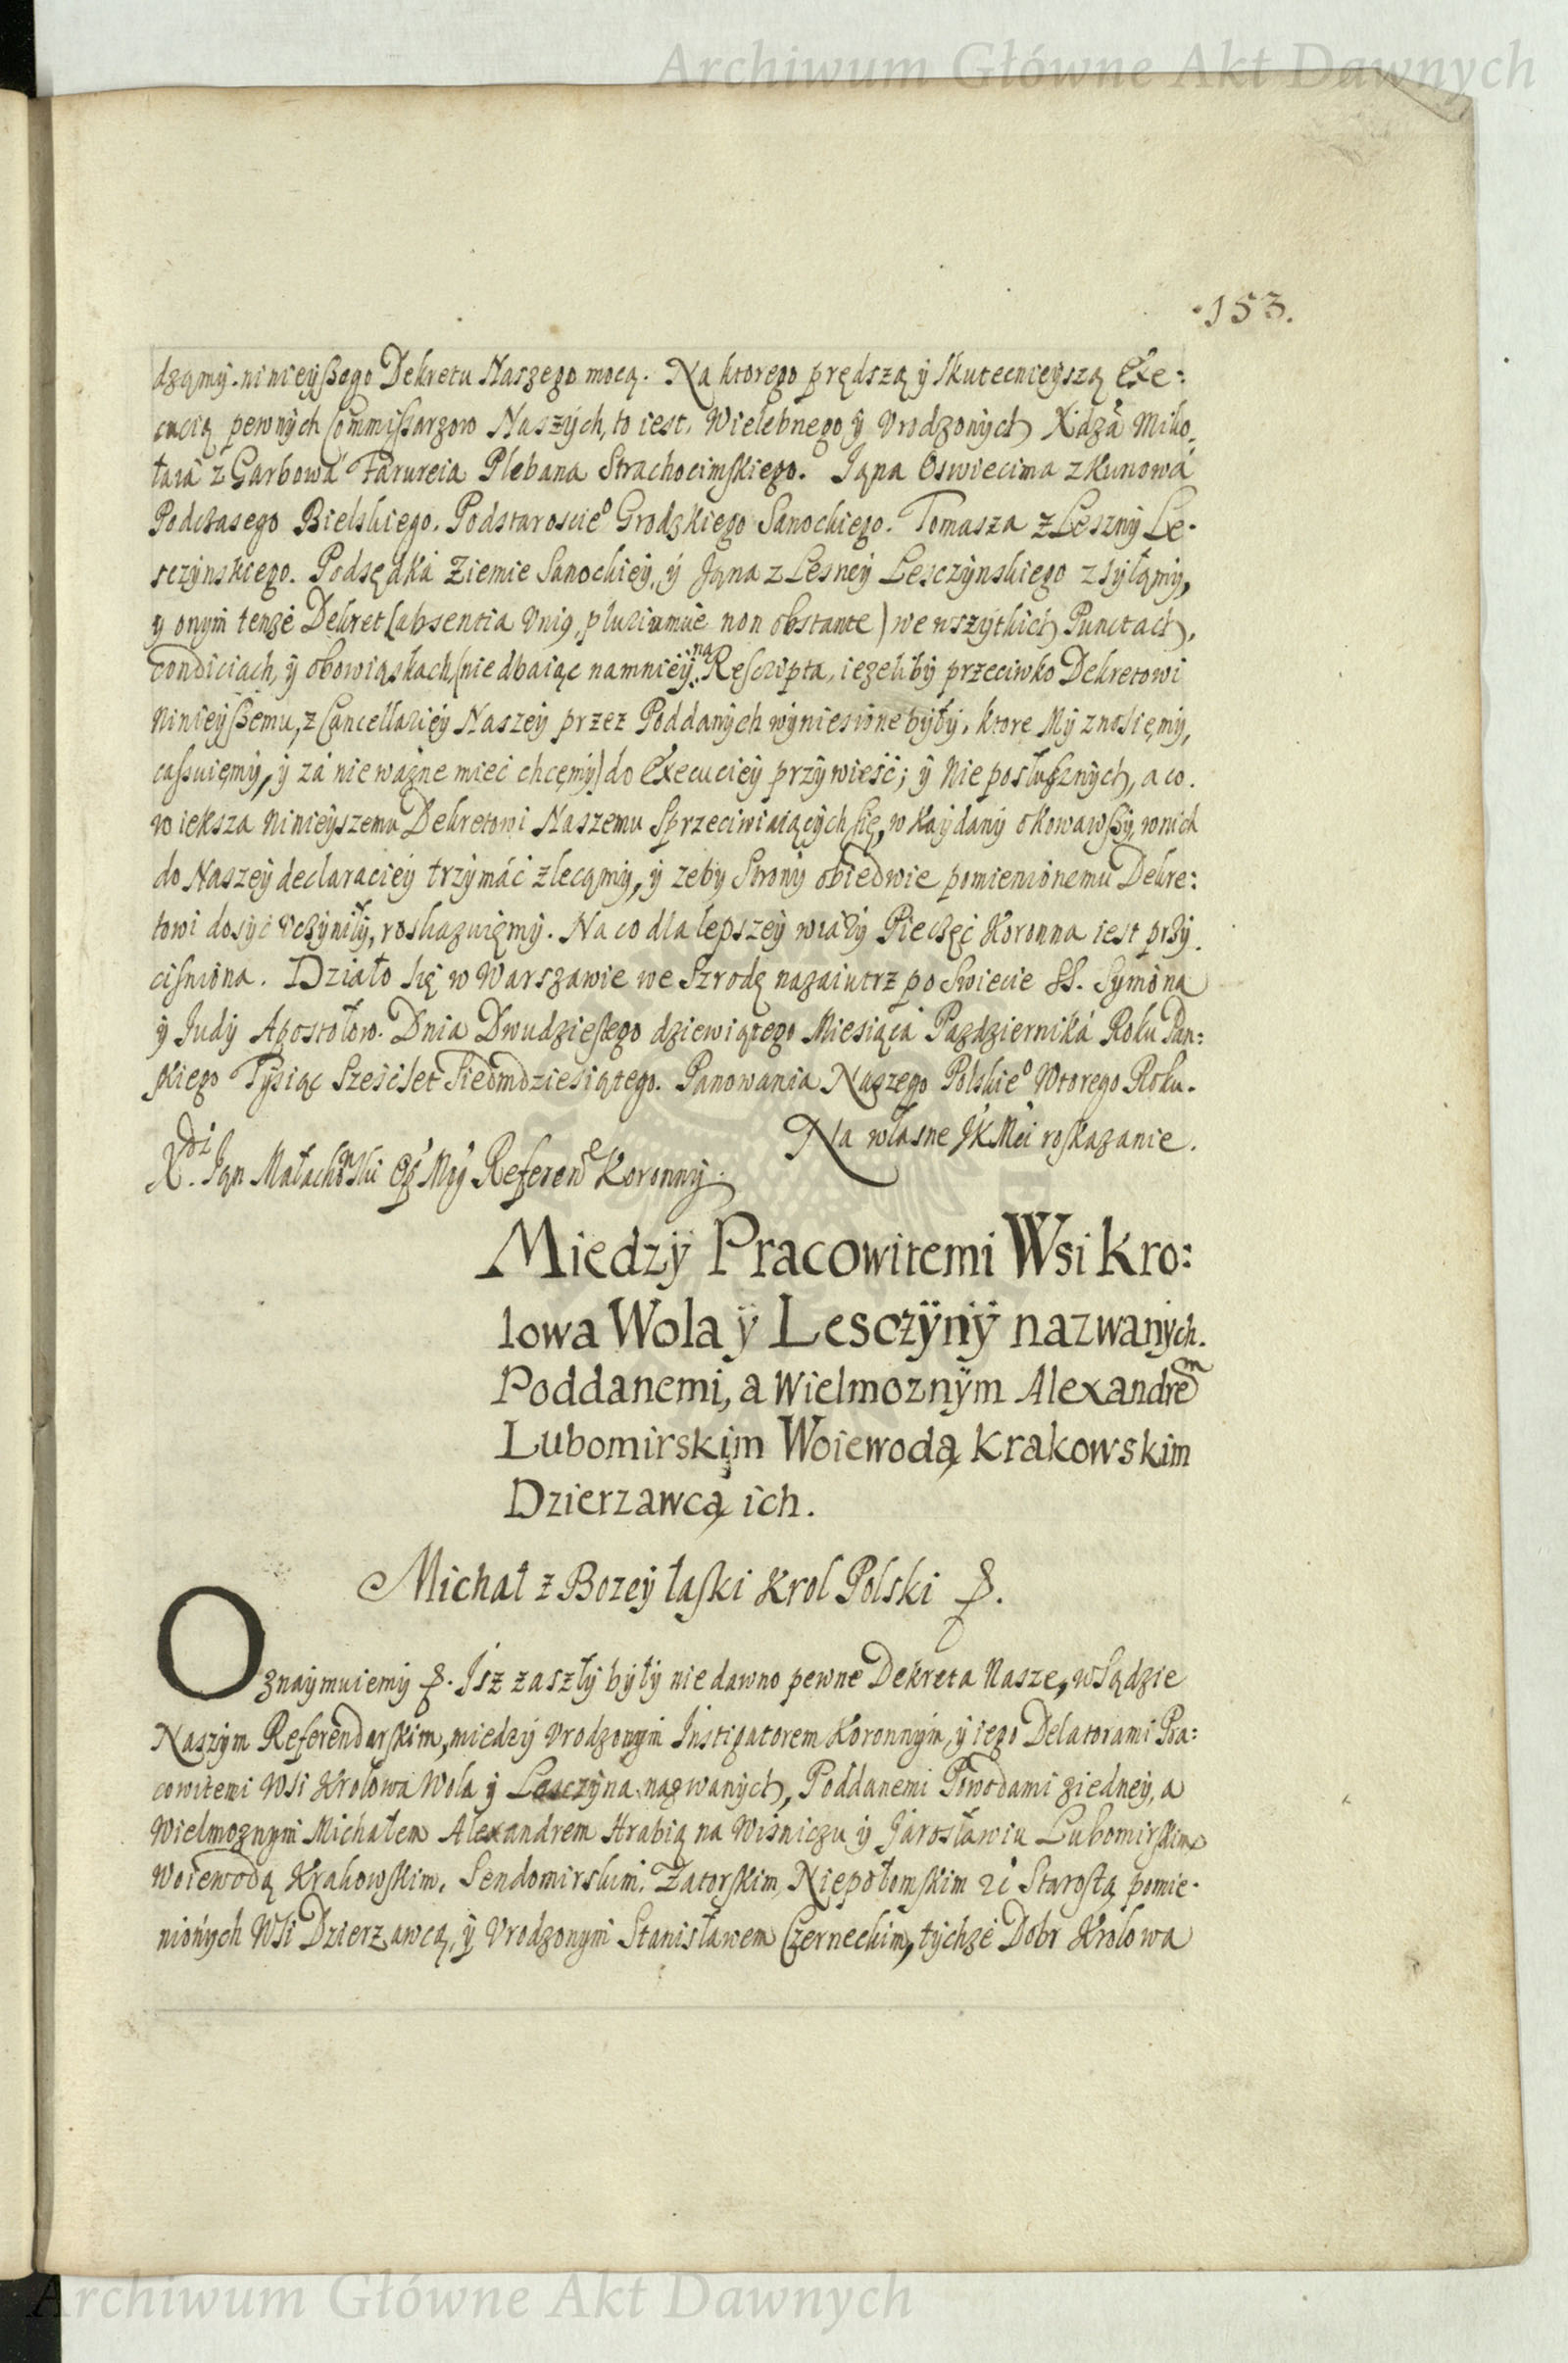 Archiwum Główne Akt Dawnych
153.
dzamy. ninieyßego Dekretu Naszego mocą. Na ktorego prędszą ÿ skutecnieyszą Exe:
cucią pewnych Commissarzow Naszÿch, to iest. Wielebnego ÿ Vrodzonych Xidza Miko,
łaia z Garbowa Plebana Strachocimskiego. Jana Oswiecima z Kunowa
Podczasego Bielskiego. Podstaroscieº Grodzkiego Sanockiego. Tomasza z Leszny Le-
sczynskiego. Podsędka Ziemie Sanockiey, ÿ Jana z Lesney Lesczynskiego zsyłamy,
y onym tenże Dekret (absentia Vniq, pluriumue non obstante) we wszytkich Punctach,
condiciach, ÿ obowiąskach, (nie dbaiąc namnieÿ na Rescripta, iezeliby przeciwko Dekretowi
Ninieyßemu, z Cancellariey Naszey przez Poddanych wyniesione były, ktore My znosięmy,
cassuięmy, ÿ za nie ważne mieć chcęmy) do Execuciey przywieść; ÿ Nie posłusznych, a co.
wieksza Ninieyszemu Dekretowi Naszemu Sprzeciwiaiących się, w Kaydany okowawßy, w nich
do Naszey declaraciey trzymáć zlecamy, ÿ zeby Strony obiedwie pomienionemu Dekre:
towi dosyć vczyniły, roskazuięmy. Na co dla lepszey wiary Pieczęć Koronna iest przy.
cisniona. Działo się w Warszawie we Szrodę nazaiutrz po Swiecie SS. Symona
ÿ Judy Apostołow. Dnia Dwudziestego dziewiątego Miesiąca Pazdziernika Roku Pan:
skiego Tysiąc Sześćset Siedmdziesiątego. Panowania Naszego Polskieº Wtorego Roku.
Na własne JKMci roskazanie.
X. Jan Małachowski Referendº Koronny.
Miedzÿ Pracowitemi Wsi Kro:
lowa Wola ÿ Lesczÿnÿ nazwanych.
Poddanemi, a Wielmoznÿm Alexandrem
Lubomirskim Woiewodą Krakowskim
Dzierzawcą ich.
Michał z Bozey łaski Krol Polski &.
Oznaymuiemy &. Jsz zaszły były nie dawno pewne Dekreta Nasze, w Sądzie
Naszym Referendarskim, miedzy Vrodzonym Instigatorem Koronnym, ÿ iego Delatorami Pra:
cowitemi Wsi Krolowa Wola ÿ Lesczyna nazwanych, Poddanemi Powodami ziedney, a
Wielmoznym Michałem Alexandrem Hrabią na Wisniczu ÿ Jarosławiu Lubomirskim
Woiewodą Krakowskim, Sendomirskim, Zatorskim, Niepołomskim zc Starostą pomie-
nionych Wsi Dzierzawcą, ÿ Vrodzonym Stanisławem Czerneckim, tychze Dobr Krolowa
Archiwum Główne Akt Dawnych